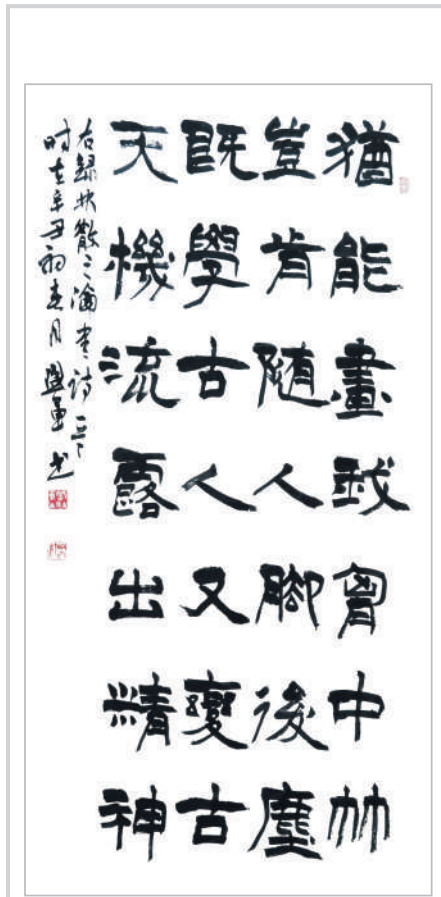 猶能畫我胷中竹
豈肯随人脚後塵
既學古人又變古
天機流露出精神
右録林散之論書诗一首
时在辛丑初春月書